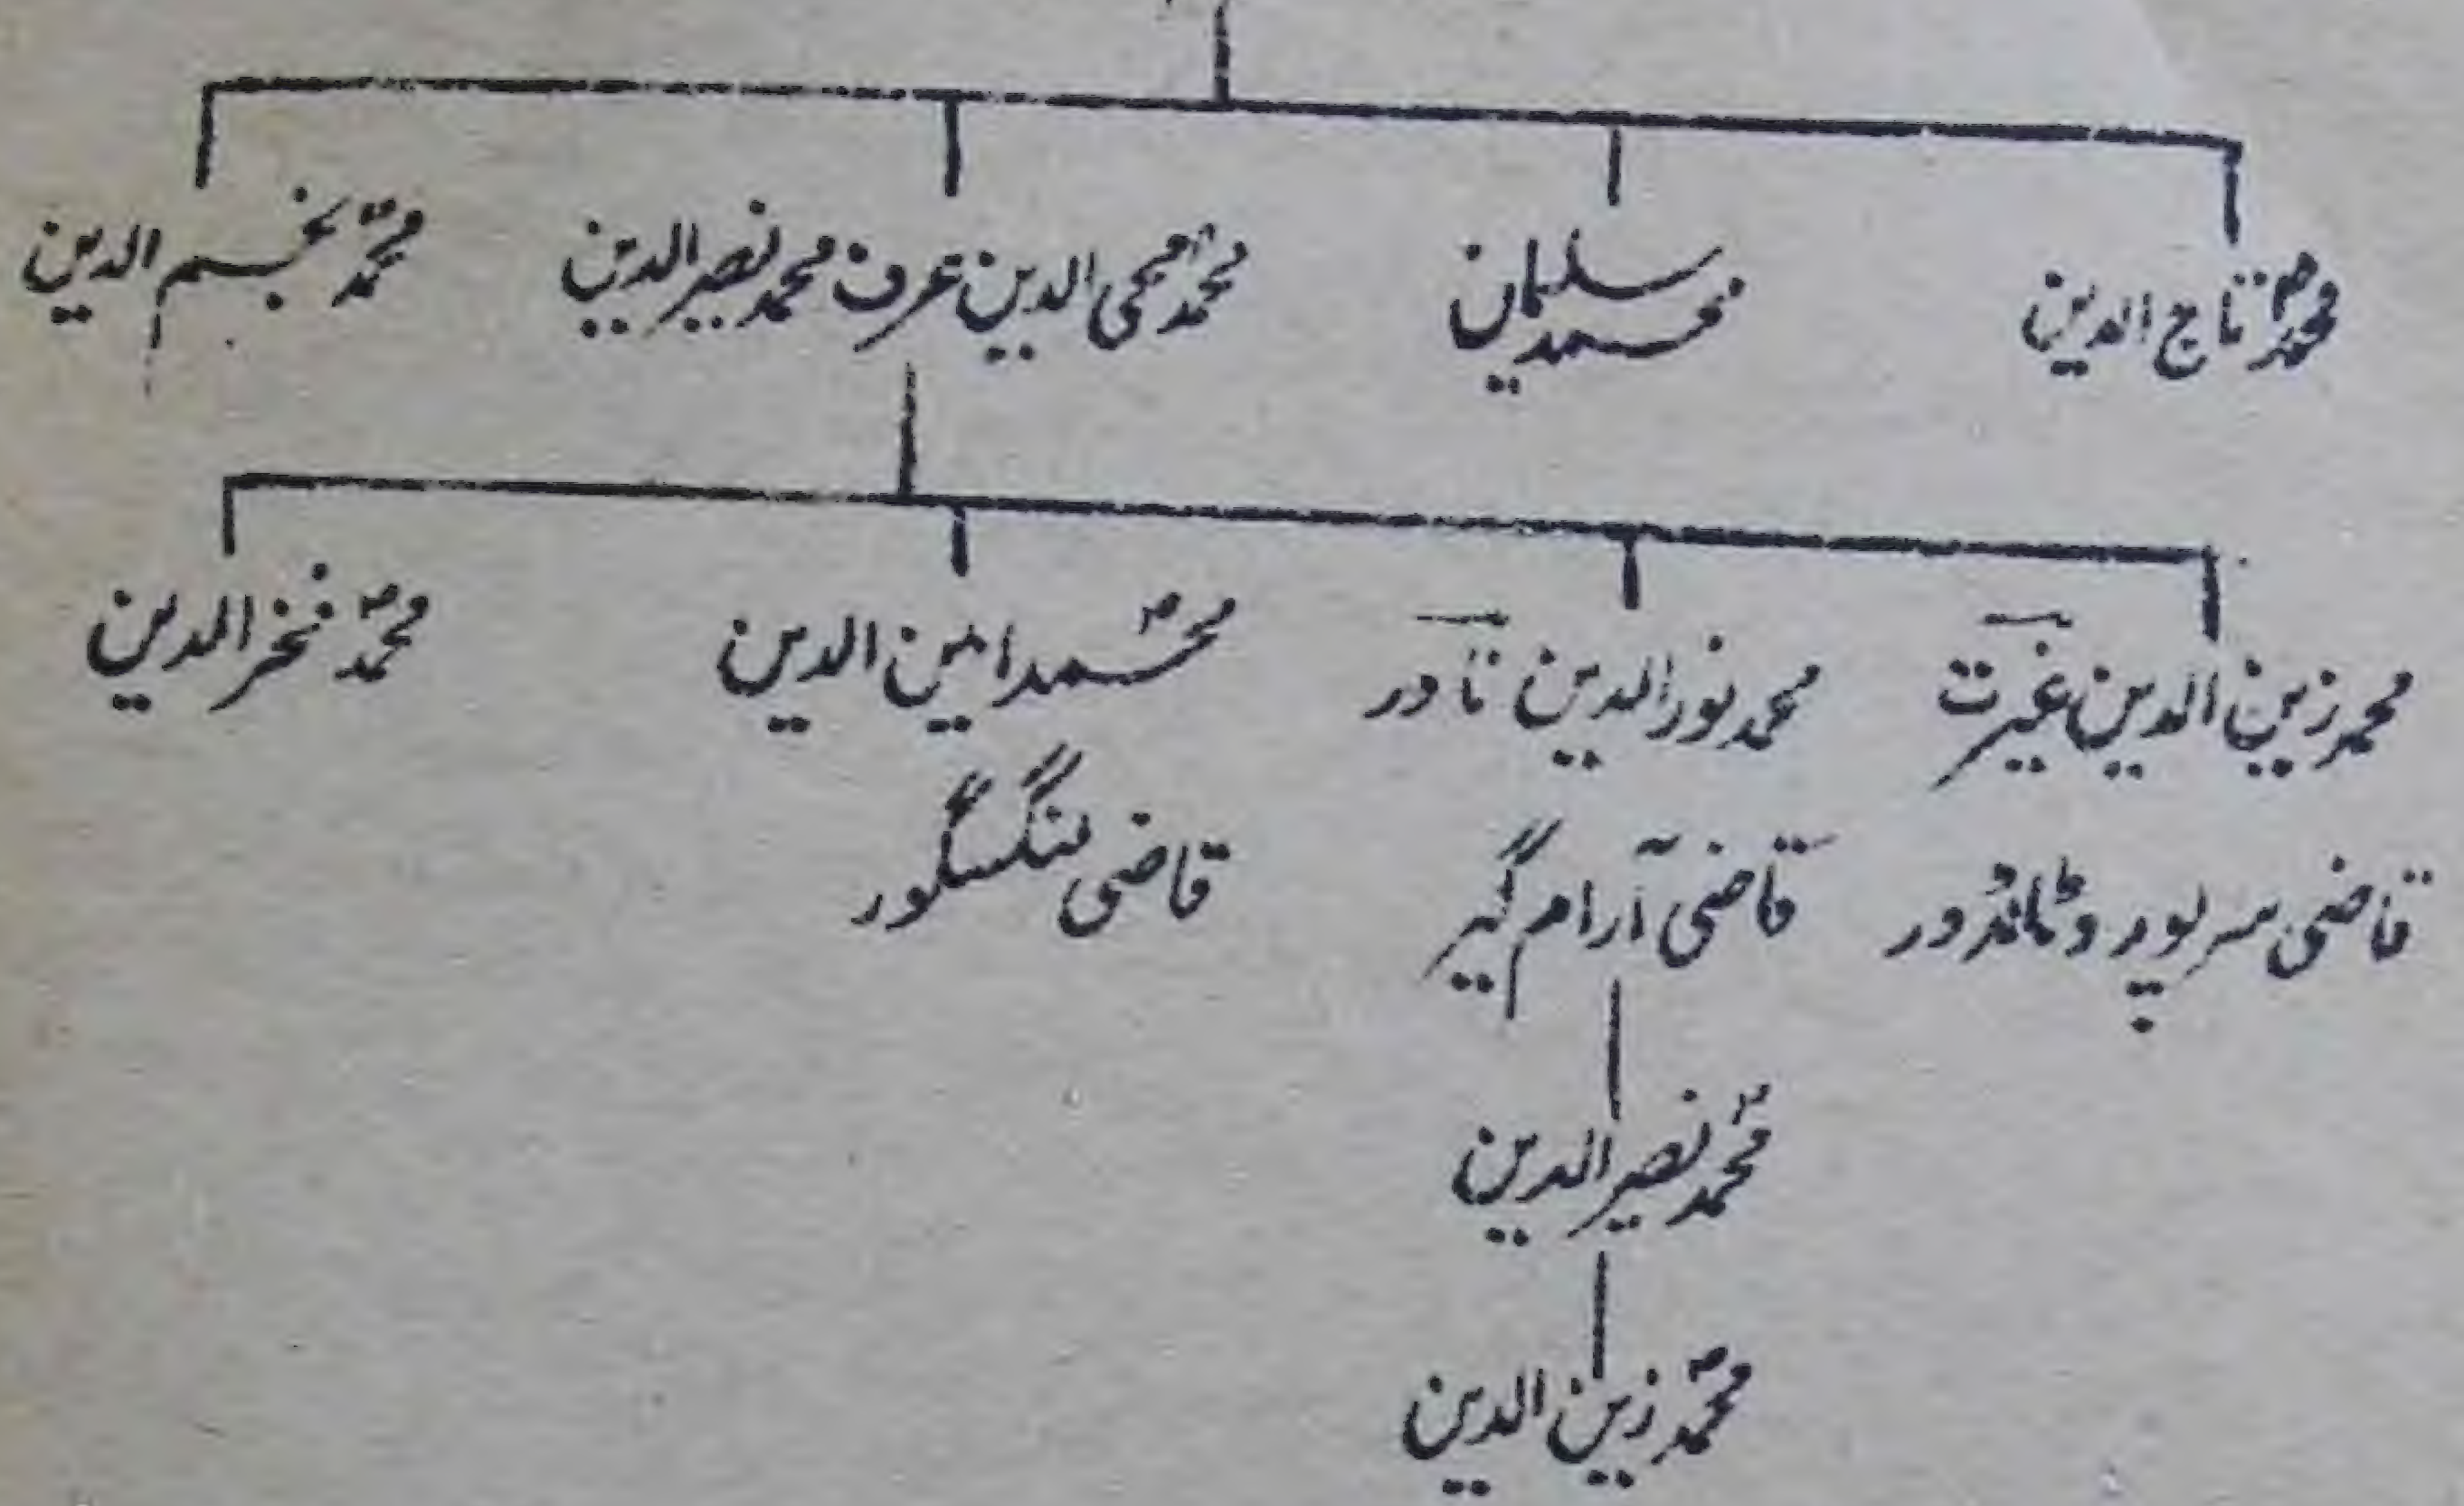 محمد تاج الدین
محمد سلیمان
محمد محی الدین عرف محمد نصیر الدین
محمد نجم الدین
محمد زین الدین غیرت
قاضی سرپور و ٹانڈور
محمد نور الدین نادر
قاضی آرام گیر
محمد امین الدین
قاضی لنگسگور
محمد فخر الدین
محمد نصیر الدین
محمد زین الدین